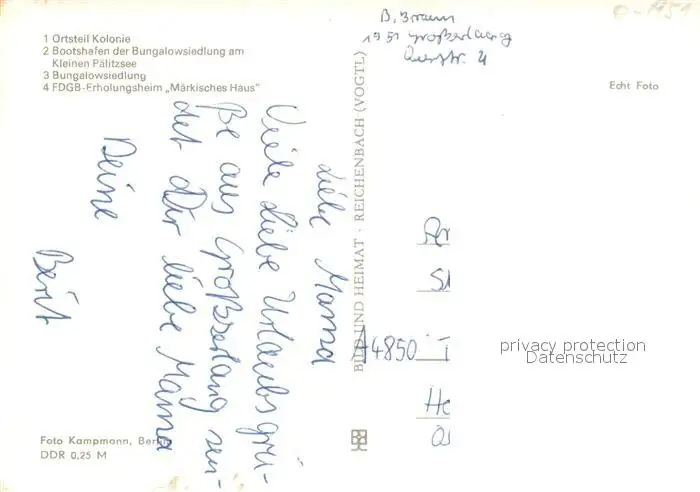 1 Ortsteil Kolonie
2 Bootshafen der Bungalowsiedlung am
Kleinen Pälitzsee
3 Bungalowsiedlung
4 FDGB-Erholungsheim „Märkisches Haus"
B. Braun
1951 Großzerlang
Querstr. 4
Echt Foto
Liebe Mama
Viele liebe Urlaubsgrü-
ße aus Großzerlang sen-
det Dir liebe Mama
Deine
Berit
BILD UND HEIMAT · REICHENBACH (VOGTL)
A4850 T
privacy protection
Datenschutz
Foto Kampmann, Berlin
DDR 0,25 M